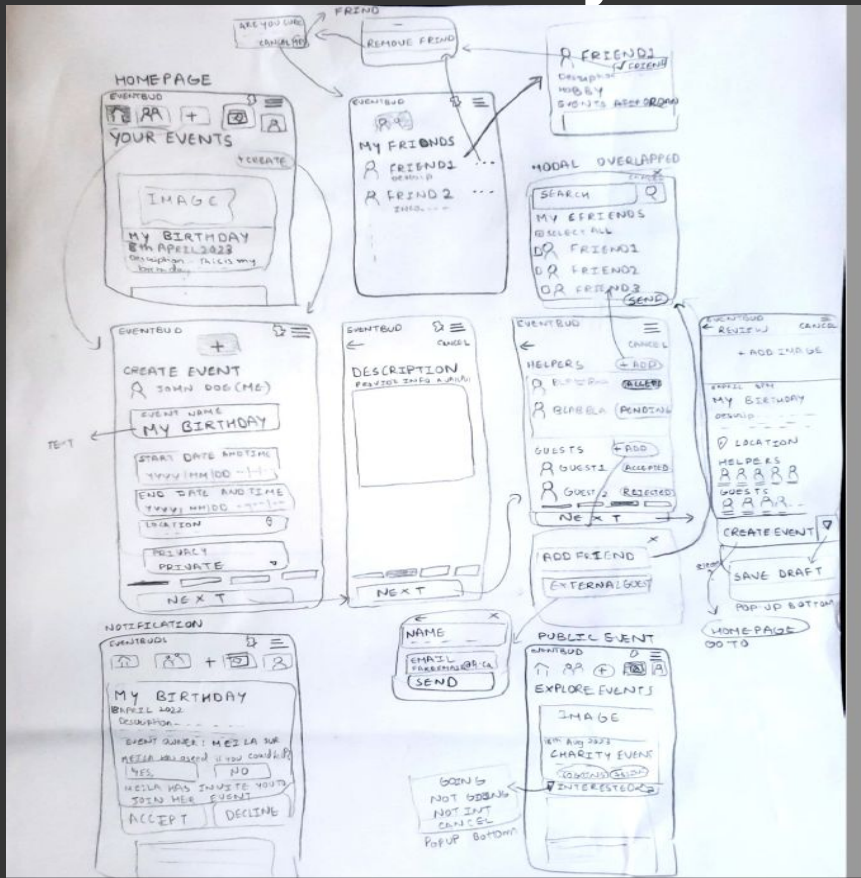 FRIND
ARE YOU SURE
CANCEL YES
REMOVE FRIND
FRIEND1
✓ FRIEND
Description
HOBBY
EVENTS
HOMEPAGE
EVENTBUD
YOUR EVENTS
+ CREATE
IMAGE
MY BIRTHDAY
8th APRIL 2023
Description - This is my
birthday
EVENTBUD
MY FRIENDS
FRIEND1
FRIND 2
INFO
MODAL OVERLAPPED
SEARCH
MY FRIENDS
SELECT ALL
FRIEND1
FRIEND2
FRIEND3
SEND
EVENTBUD
+
CREATE EVENT
JOHN DOE (ME)
EVENT NAME
MY BIRTHDAY
TEXT
START DATE AND TIME
YYYY/MM/DD
END DATE AND TIME
YYYY/MM/DD
LOCATION
PRIVACY
PRIVATE
NEXT
EVENTBUD
CANCEL
DESCRIPTION
NEXT
EVENTBUD
CANCEL
HELPERS
+ ADD
BLABELA
PENDING
GUESTS
+ ADD
GUEST1
ACCEPTED
GUEST2
REJECTED
NEXT
ADD FRIEND
EXTERNAL GUEST
NAME
EMAIL
SEND
EVENTBUD
REVIEW
CANCEL
+ ADD IMAGE
MY BIRTHDAY
LOCATION
HELPERS
GUESTS
CREATE EVENT
SAVE DRAFT
POP UP BOTTOM
HOMEPAGE
GO TO
NOTIFICATION
EVENTBUDS
MY BIRTHDAY
8 APRIL 2022
Description
EVENT OWNER: MEILA SUR
YES
NO
MEILA HAS INVITE YOU TO
JOIN HER EVENT
ACCEPT
DECLINE
PUBLIC EVENT
EVENTBUD
EXPLORE EVENTS
IMAGE
18th Aug 2023
CHARITY EVENT
INTERESTED
GOING
NOT GOING
NOT INT
CANCEL
POPUP BOTTOM